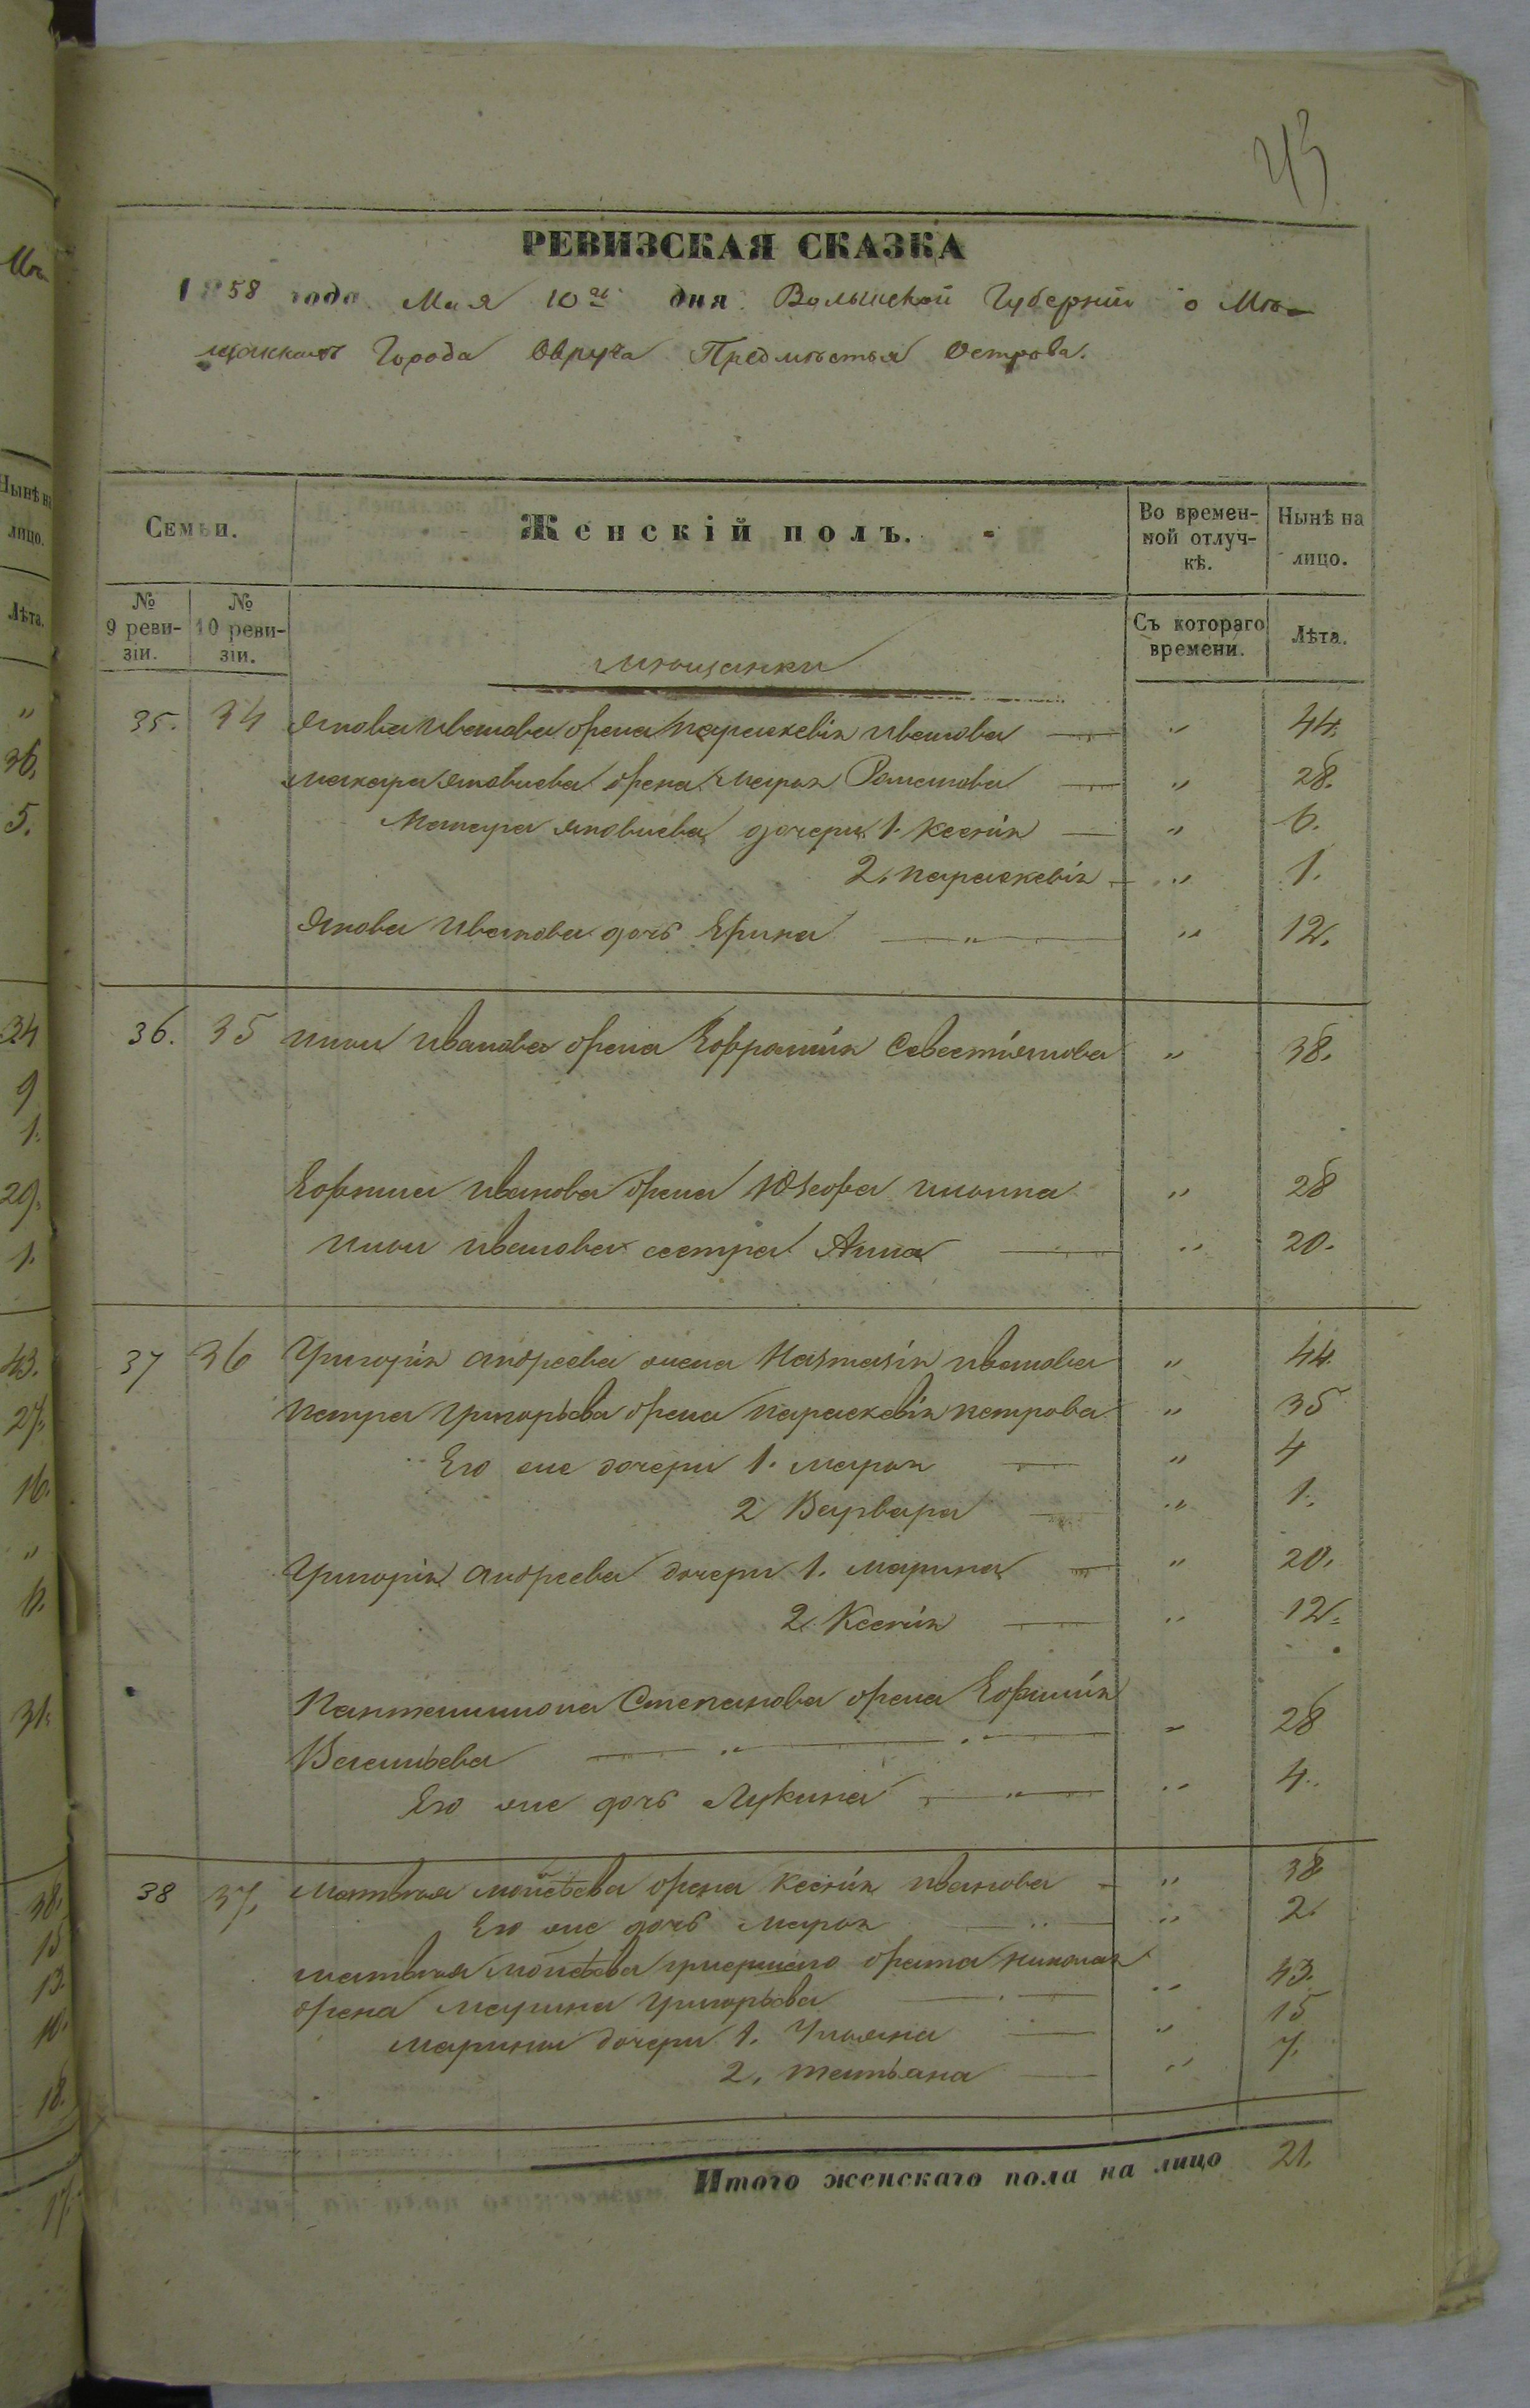 43
РЕВИЗСКАЯ СКАЗКА
1858 года Мая 10го дня Волынской Губерніи о Мѣ-
щанкахъ Города Овруча Предмѣстья Острова.
Семьи.
Женскій полъ.
Во времен-
ной отлуч-
кѣ.
Нынѣ на
лицо.
№
9 реви-
зіи.
№
10 реви-
зіи.
Съ котораго
времени.
Лѣта.
Мѣщанки
35. 34 Якова Иванова жена Параскевія Иванова — „ 44.
Макара Яковлева жена Марья Романова — „ 28.
Макара Яковлева дочери 1. Ксенія — „ 6.
2. Параскевія — „ 1.
Якова Иванова дочь Ерина — „ — „ 12.
36. 35 Ильи Иванова жена Евфросинія Севестіянова „ 38.
Иванова жена Юзефа „ 28
Ильи Иванова сестра Анна — „ 20.
37 36 Григорія Андреева жена Настасія Иванова „ 44.
Петра Григорьева жена Параскевія Петрова „ 35
Его же дочери 1. Марья — „ 4
2 Варвара — „ 1.
Григорія Андреева дочери 1. Марина — „ 20.
2. Ксенія — „ 12.
Пантелимона Степанова жена Ефимія
Васильева — „ — „ — „ 28
Его же дочь Лукина — „ — „ 4.
38 37. Матвѣя Мойсѣева жена Ксенія Иванова — „ 38
Его же дочь Марья — „ — „ 2.
Матвѣя Мойсѣева умершаго брата Николая
жена Марина Григорьева — „ — „ 43.
Марины дочери 1. Ульяна — „ 15
2. Татьяна — „ 7.
Итого женскаго пола на лицо 21.
Нынѣ на
лицо.
Лѣта.
„
36.
5.
34
9
1.
29.
1.
43.
27.
16.
„
6.
31.
38.
15
13.
10.
18.
17.